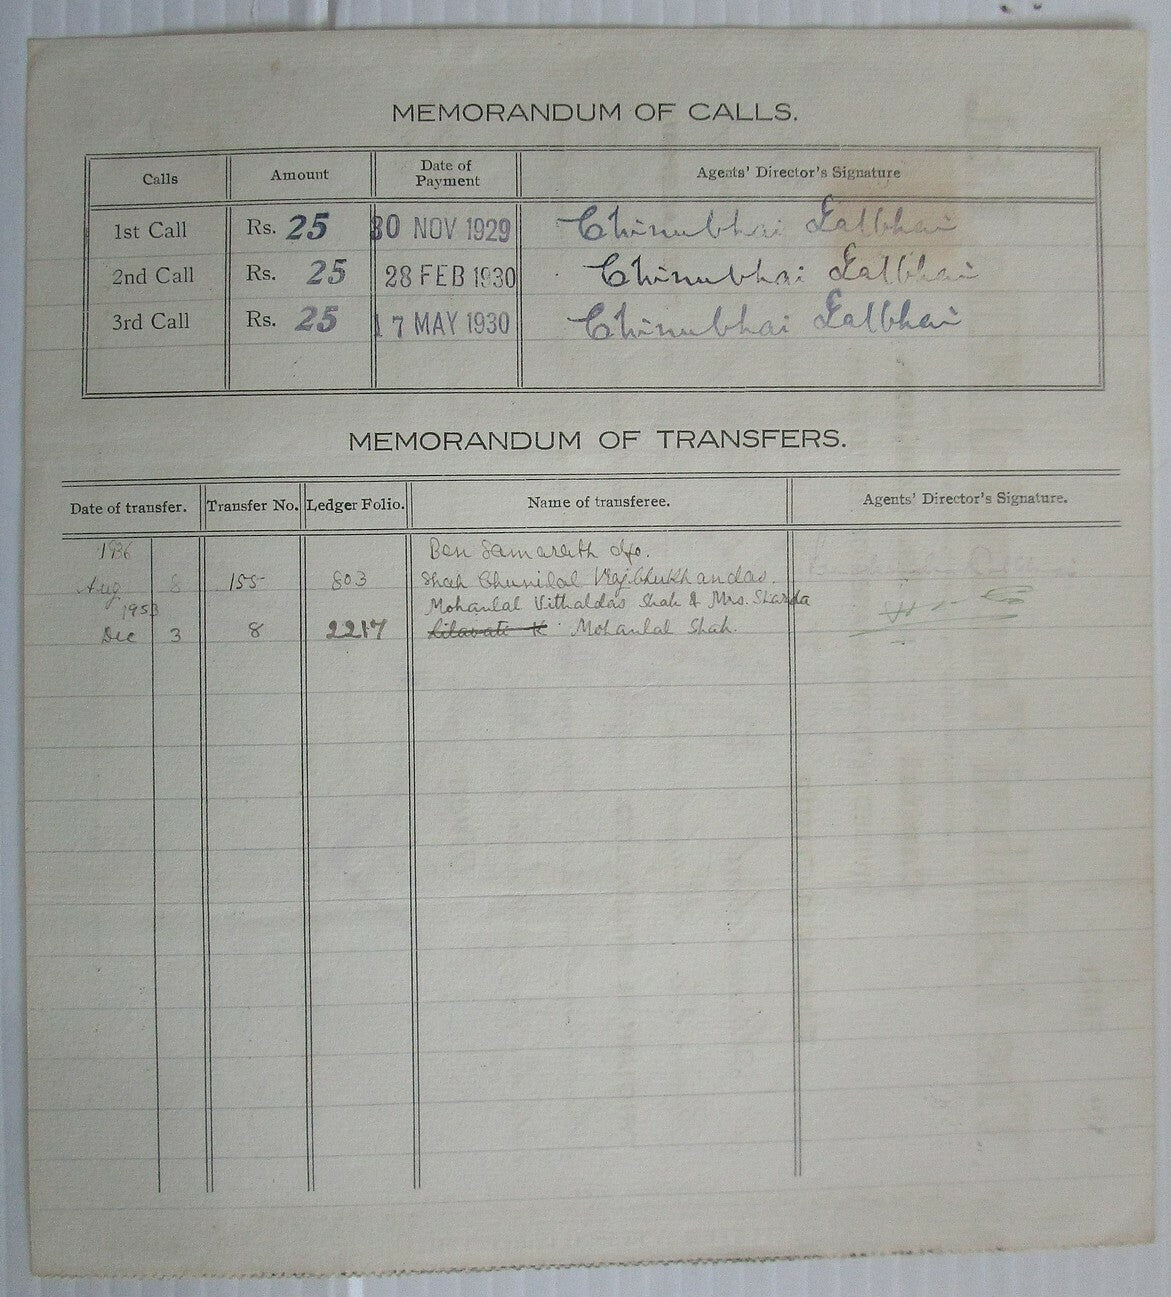 MEMORANDUM OF CALLS.
Calls Amount Date of Payment Agents' Director's Signature
1st Call Rs. 25 30 NOV 1929 Chinubhai Lalbhai
2nd Call Rs. 25 28 FEB 1930 Chinubhai Lalbhai
3rd Call Rs. 25 17 MAY 1930 Chinubhai Lalbhai
MEMORANDUM OF TRANSFERS.
Date of transfer. Transfer No. Ledger Folio. Name of transferee. Agents' Director's Signature.
1936 Ben Samarath d/o.
Aug 8 155 803 Shah Chunilal Vrajbhukhandas.
1953 Mohanlal Vithaldas Shah & Mrs. Sharda
Dec 3 8 2217 Lilavati K Mohanlal Shah.